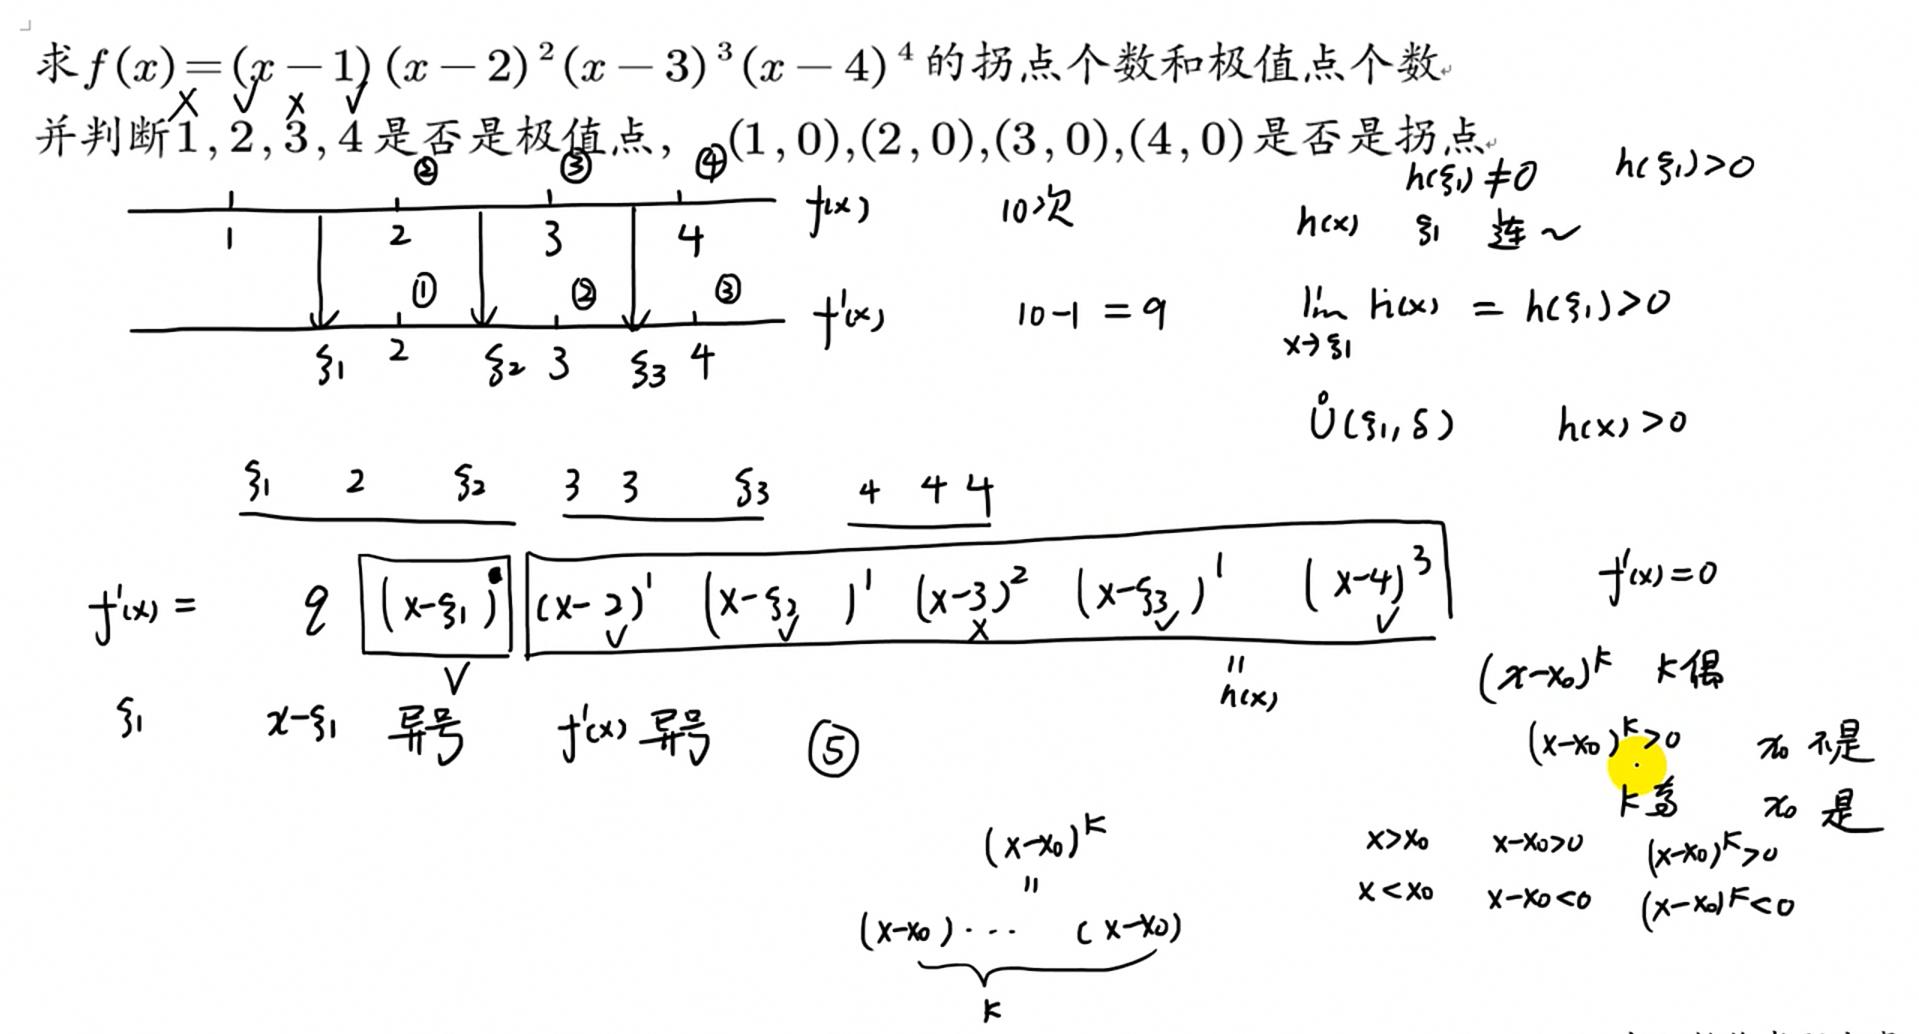 求f(x)=(x-1)(x-2)²(x-3)³(x-4)⁴的拐点个数和极值点个数
× ✓ × ✓
并判断1,2,3,4是否是极值点，(1,0),(2,0),(3,0),(4,0)是否是拐点
② ③ ④
f(x) 10次
1 2 3 4
① ② ③
f'(x) 10-1=9
ξ1 2 ξ2 3 ξ3 4
h(ξ1)≠0 h(ξ1)>0
h(x) ξ1 连~
lim h(x) = h(ξ1)>0
x→ξ1
Ů(ξ1,δ) h(x)>0
ξ1 2 ξ2 3 3 ξ3 4 4 4
f'(x)= (x-ξ1) (x-2)¹ (x-ξ2)¹ (x-3)² (x-ξ3)¹ (x-4)³
✓ ✓ ✓ × ✓ ✓
"
h(x)
ξ1 x-ξ1 异号 f'(x) 异号 ⑤
f'(x)=0
(x-x₀)ᵏ k偶
(x-x₀)ᵏ>0 x₀ 不是
k奇 x₀ 是
x>x₀ x-x₀>0 (x-x₀)ᵏ>0
x<x₀ x-x₀<0 (x-x₀)ᵏ<0
(x-x₀)ᵏ
"
(x-x₀)··· (x-x₀)
k